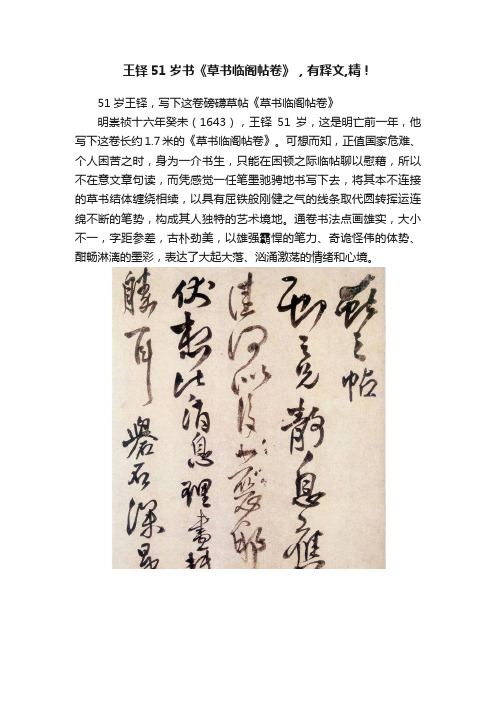 王铎51岁书《草书临阁帖卷》，有释文,精！
51岁王铎，写下这卷磅礴草帖《草书临阁帖卷》
明崇祯十六年癸未（1643），王铎51岁，这是明亡前一年，他
写下这卷长约1.7米的《草书临阁帖卷》。可想而知，正值国家危难、
个人困苦之时，身为一介书生，只能在困顿之际临帖聊以慰藉，所以
不在意文章句读，而凭感觉一任笔墨驰骋地书写下去，将其本不连接
的草书结体缠绕相续，以具有屈铁般刚健之气的线条取代圆转挥运连
绵不断的笔势，构成其人独特的艺术境地。通卷书法点画雄实，大小
不一，字距参差，古朴劲美，以雄强霸悍的笔力、奇诡怪伟的体势、
酣畅淋漓的墨彩，表达了大起大落、汹涌激荡的情绪和心境。
獻之帖
之兄静息應
佳何以復小惡耶
伏想比消息理盡轉
勝耳礜石深是